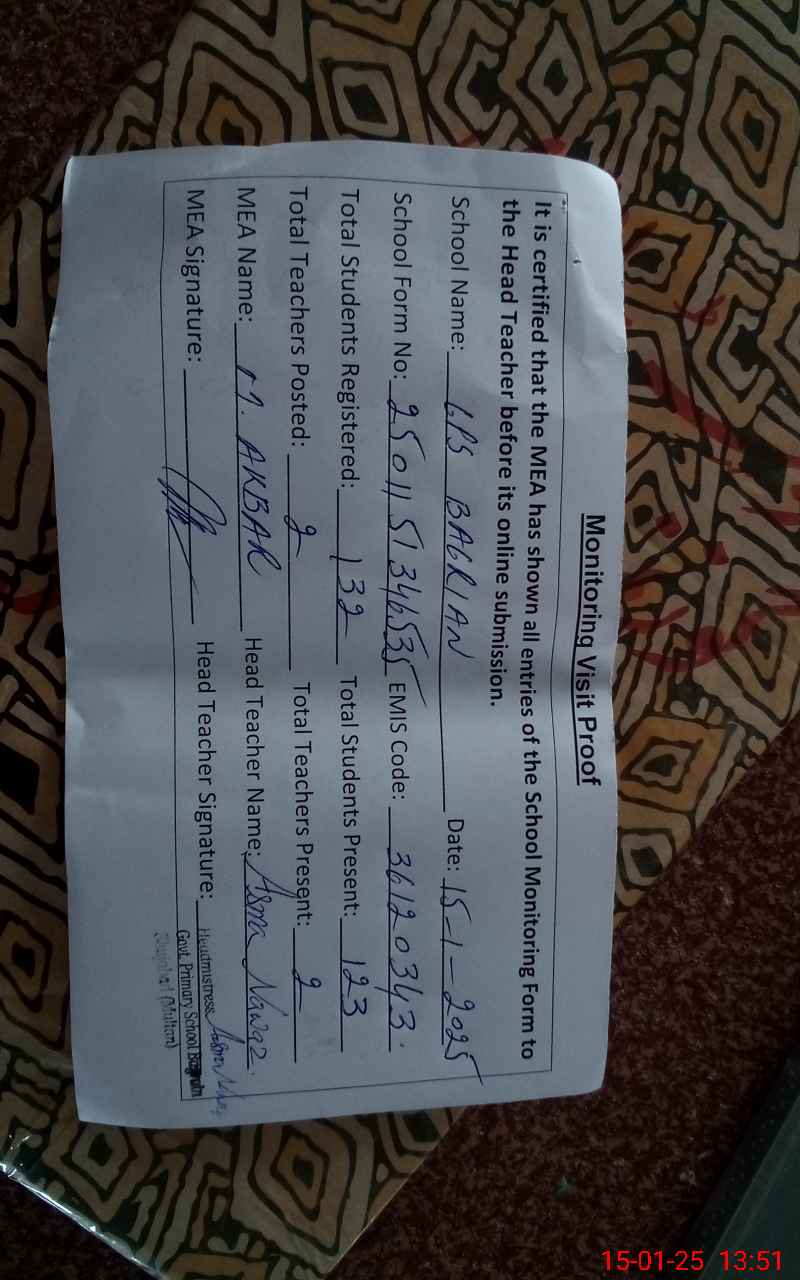 Monitoring Visit Proof
It is certified that the MEA has shown all entries of the School Monitoring Form to
the Head Teacher before its online submission.
School Name: GPS BAGRIAN Date: 15-1-2025
School Form No: 2501151346535 EMIS Code: 36120343.
Total Students Registered: 132 Total Students Present: 123
Total Teachers Posted: 2 Total Teachers Present: 2
MEA Name: M. AKBAR Head Teacher Name: Asma Nawaz.
MEA Signature: Head Teacher Signature: Asma
Headmistress
Govt. Primary School
(Multan)
15-01-25 13:51